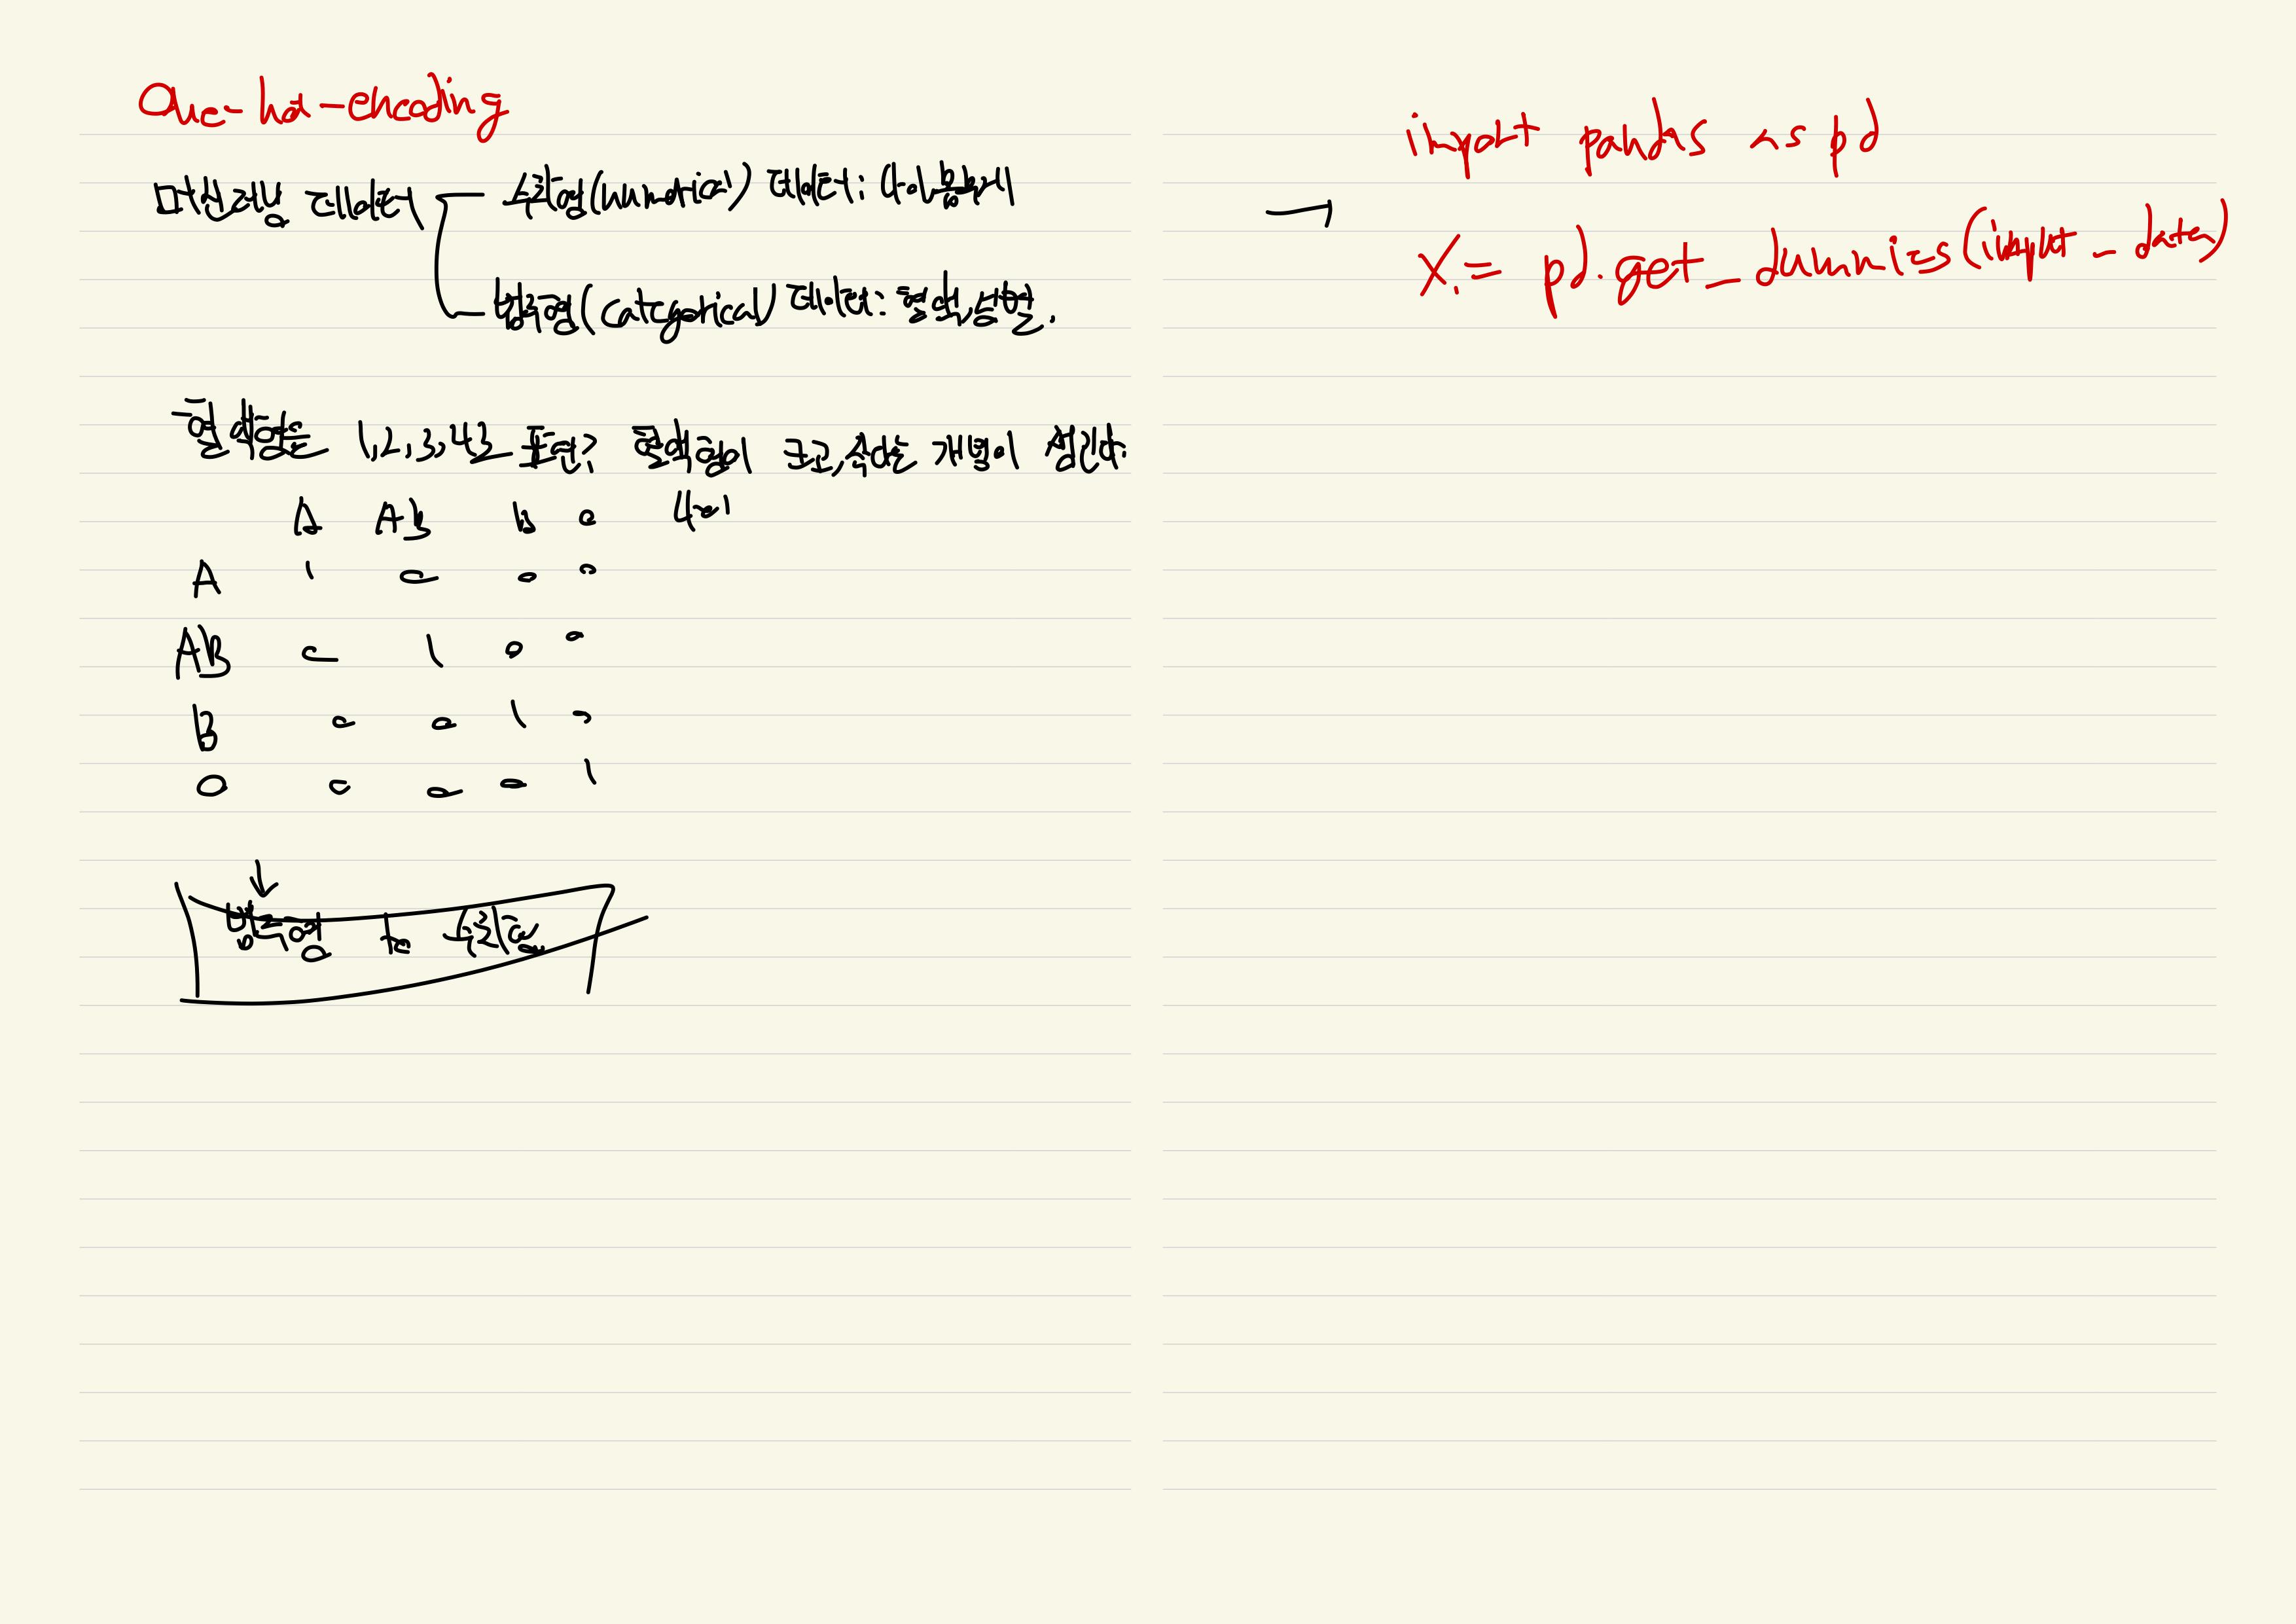 One-hot-encoding
머신러닝 데이터
수치형(numerical) 데이터: 나이, 몸무게
범주형(categorical) 데이터: 혈액형, 성별.
혈액형을 1,2,3,4로 표현? 혈액형에 크고, 작다는 개념이 생긴다.
A AB B O
A 1 0 0 0
AB 0 1 0 0
B 0 0 1 0
O 0 0 0 1
↓
범주형 to 수치형
→
import pandas as pd
X = pd.get_dummies(input_data)